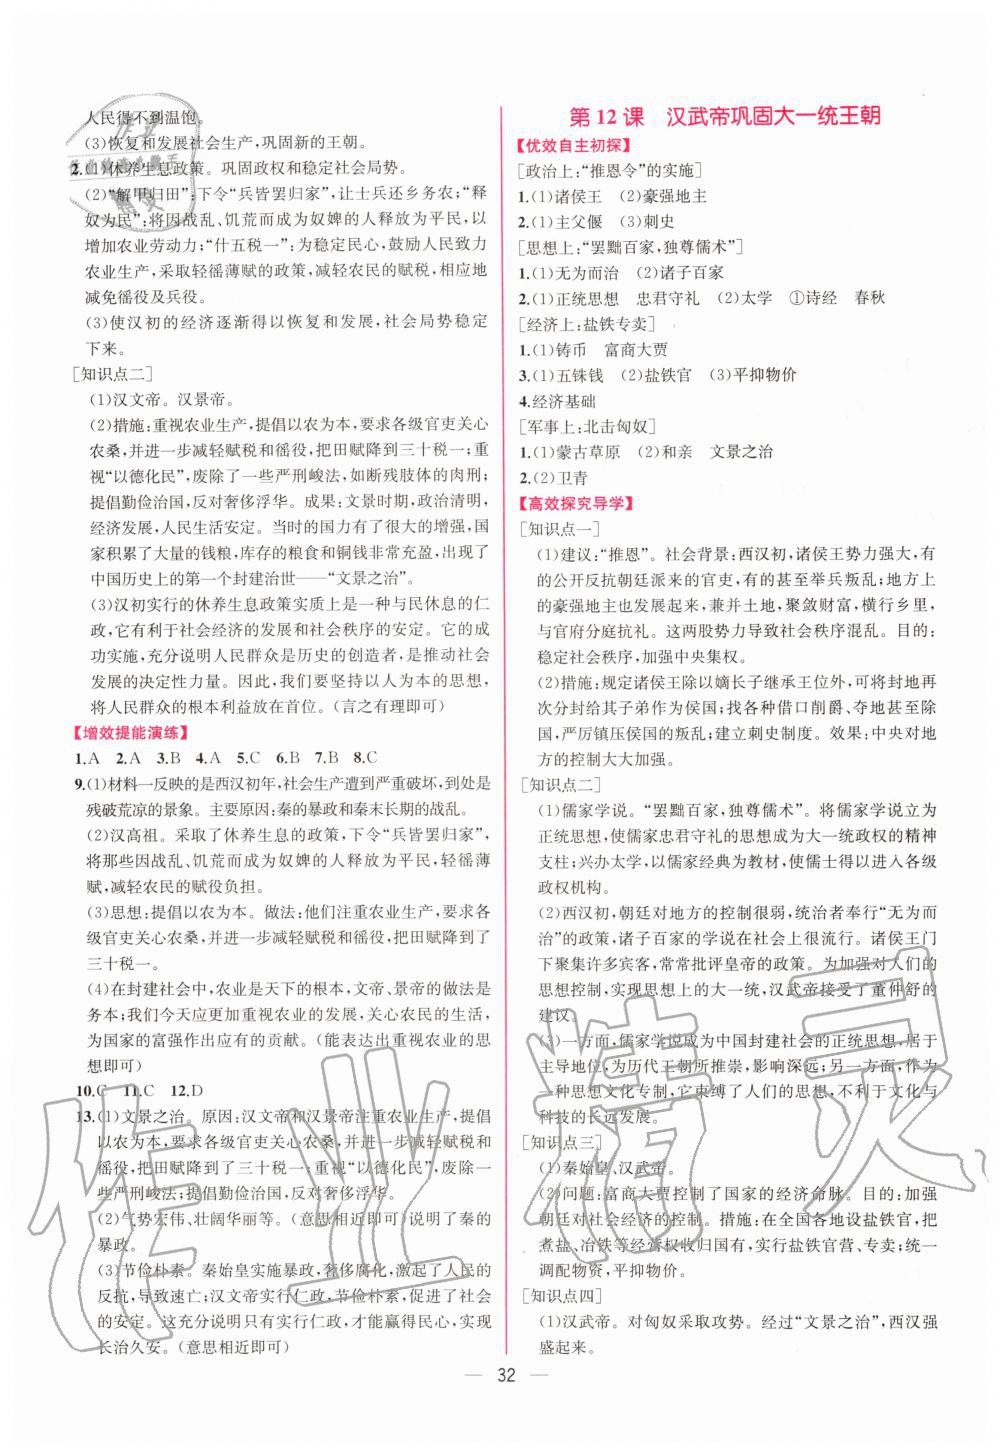 人民得不到温饱。
(3)恢复和发展社会生产,巩固新的王朝。
2.(1)休养生息政策。巩固政权和稳定社会局势。
(2)“解甲归田”:下令“兵皆罢归家”,让士兵还乡务农;“释
奴为民”:将因战乱、饥荒而成为奴婢的人释放为平民,以
增加农业劳动力;“什五税一”:为稳定民心,鼓励人民致力
农业生产,采取轻徭薄赋的政策,减轻农民的赋税,相应地
减免徭役及兵役。
(3)使汉初的经济逐渐得以恢复和发展,社会局势稳定
下来。
[知识点二]
(1)汉文帝。汉景帝。
(2)措施:重视农业生产,提倡以农为本,要求各级官吏关心
农桑,并进一步减轻赋税和徭役,把田赋降到三十税一;重
视“以德化民”,废除了一些严刑峻法,如断残肢体的肉刑;
提倡勤俭治国,反对奢侈浮华。成果:文景时期,政治清明,
经济发展,人民生活安定。当时的国力有了很大的增强,国
家积累了大量的钱粮,库存的粮食和铜钱非常充盈,出现了
中国历史上的第一个封建治世——“文景之治”。
(3)汉初实行的休养生息政策实质上是一种与民休息的仁
政,它有利于社会经济的发展和社会秩序的安定。它的成
功实施,充分说明人民群众是历史的创造者,是推动社会
发展的决定性力量。因此,我们要坚持以人为本的思想,
将人民群众的根本利益放在首位。(言之有理即可)
【增效提能演练】
1.A 2.A 3.B 4.A 5.C 6.B 7.B 8.C
9.(1)材料一反映的是西汉初年,社会生产遭到严重破坏,到处是
残破荒凉的景象。主要原因:秦的暴政和秦末长期的战乱。
(2)汉高祖。采取了休养生息的政策,下令“兵皆罢归家”,
将那些因战乱、饥荒而成为奴婢的人释放为平民,轻徭薄
赋,减轻农民的赋役负担。
(3)思想:提倡以农为本。做法:他们注重农业生产,要求各
级官吏关心农桑,并进一步减轻赋税和徭役,把田赋降到了
三十税一。
(4)在封建社会中,农业是天下的根本,文帝、景帝的做法是
务本;我们今天应更加重视农业的发展,关心农民的生活,
为国家的富强作出应有的贡献。(能表达出重视农业的思
想即可)
10.C 11.C 12.D
13.(1)文景之治。原因:汉文帝和汉景帝注重农业生产,提倡
以农为本,要求各级官吏关心农桑,并进一步减轻赋税和
徭役,把田赋降到了三十税一;重视“以德化民”,废除一
些严刑峻法;提倡勤俭治国,反对奢侈浮华。
(2)气势宏伟、壮阔华丽等。(意思相近即可)说明了秦的
暴政。
(3)节俭朴素。秦始皇实施暴政,奢侈腐化,激起了人民的
反抗,导致速亡;汉文帝实行仁政,节俭朴素,促进了社会
的安定。这充分说明实行仁政,才能赢得民心,实现
长治久安。(意思相近即可)
第12课 汉武帝巩固大一统王朝
【优效自主初探】
[政治上:“推恩令”的实施]
1.(1)诸侯王 (2)豪强地主
2.(1)主父偃 (3)刺史
[思想上:“罢黜百家,独尊儒术”]
1.(1)无为而治 (2)诸子百家
2.(1)正统思想 忠君守礼 (2)太学 ①诗经 春秋
[经济上:盐铁专卖]
1.(1)铸币 富商大贾
3.(1)五铢钱 (2)盐铁官 (3)平抑物价
4.经济基础
[军事上:北击匈奴]
1.(1)蒙古草原 (2)和亲 文景之治
2.(2)卫青
【高效探究导学】
[知识点一]
(1)建议:“推恩”。社会背景:西汉初,诸侯王势力强大,有
的公开反抗朝廷派来的官吏,有的甚至举兵叛乱;地方上
的豪强地主也发展起来,兼并土地,聚敛财富,横行乡里,
与官府分庭抗礼。这两股势力导致社会秩序混乱。目的:
稳定社会秩序,加强中央集权。
(2)措施:规定诸侯王除以嫡长子继承王位外,可将封地再
次分封给其子弟作为侯国;找各种借口削爵、夺地甚至除
国,严厉镇压侯国的叛乱;建立刺史制度。效果:中央对地
方的控制大大加强。
[知识点二]
(1)儒家学说。“罢黜百家,独尊儒术”。将儒家学说立为
正统思想,使儒家忠君守礼的思想成为大一统政权的精神
支柱;兴办太学,以儒家经典为教材,使儒士得以进入各级
政权机构。
(2)西汉初,朝廷对地方的控制很弱,统治者奉行“无为而
治”的政策,诸子百家的学说在社会上很流行。诸侯王门
下聚集许多宾客,常常批评皇帝的政策。为加强中央集权和
思想控制,实现思想上的大一统,汉武帝接受了董仲舒的
建议。
(3)一方面,儒家学说成为中国封建社会的正统思想,居于
主导地位,为历代王朝所推崇,影响深远;另一方面,作为
一种思想文化专制,它束缚了人们的思想,不利于文化与
科技的长远发展。
[知识点三]
(1)秦始皇、汉武帝。
(2)问题:富商大贾控制了国家的经济命脉。目的:加强
朝廷对社会经济的控制。措施:在全国各地设盐铁官,把
煮盐、冶铁等经营权收归国有,实行盐铁官营、专卖;统一
调配物资,平抑物价。
[知识点四]
(1)汉武帝。对匈奴采取攻势。经过“文景之治”,西汉强
盛起来。
32
作业精灵